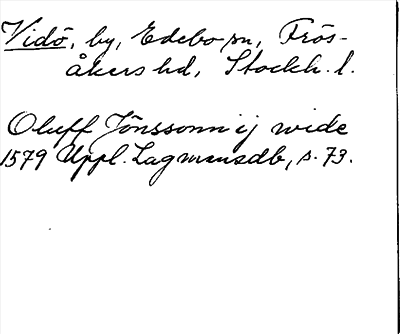 Vidö, by, Edebo sn, Frös-
åkers hd, Stockh. l.
Oluff Jönssonn ij wide
1579 Uppl. Lagmansdb, s. 73.